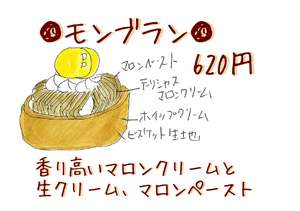 モンブラン
620円
マロンペースト
デリシャス
マロンクリーム
ホイップクリーム
ビスケット生地
香り高いマロンクリームと
生クリーム、マロンペースト